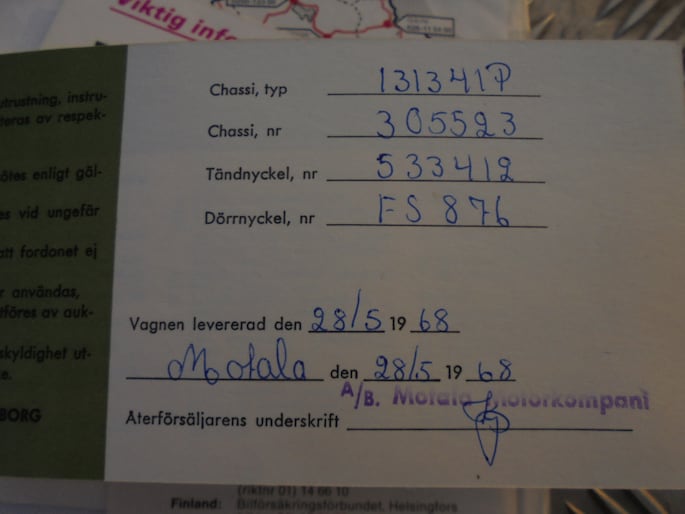 Viktig info
utrustning, instru-
teras av respek-
ötes enligt gäl-
es vid ungefär
att fordonet ej
r användas,
tföres av auk-
skyldighet ut-
e.
BORG
Chassi, typ 131341P
Chassi, nr 305523
Tändnyckel, nr 533412
Dörrnyckel, nr FS 876
Vagnen levererad den 28/5 19 68
Motala den 28/5 19 68
A/B. Motala Motorkompani
Återförsäljarens underskrift
(riktnr 01) 14 66 10
Finland: Bilförsäkringsförbundet, Helsingfors